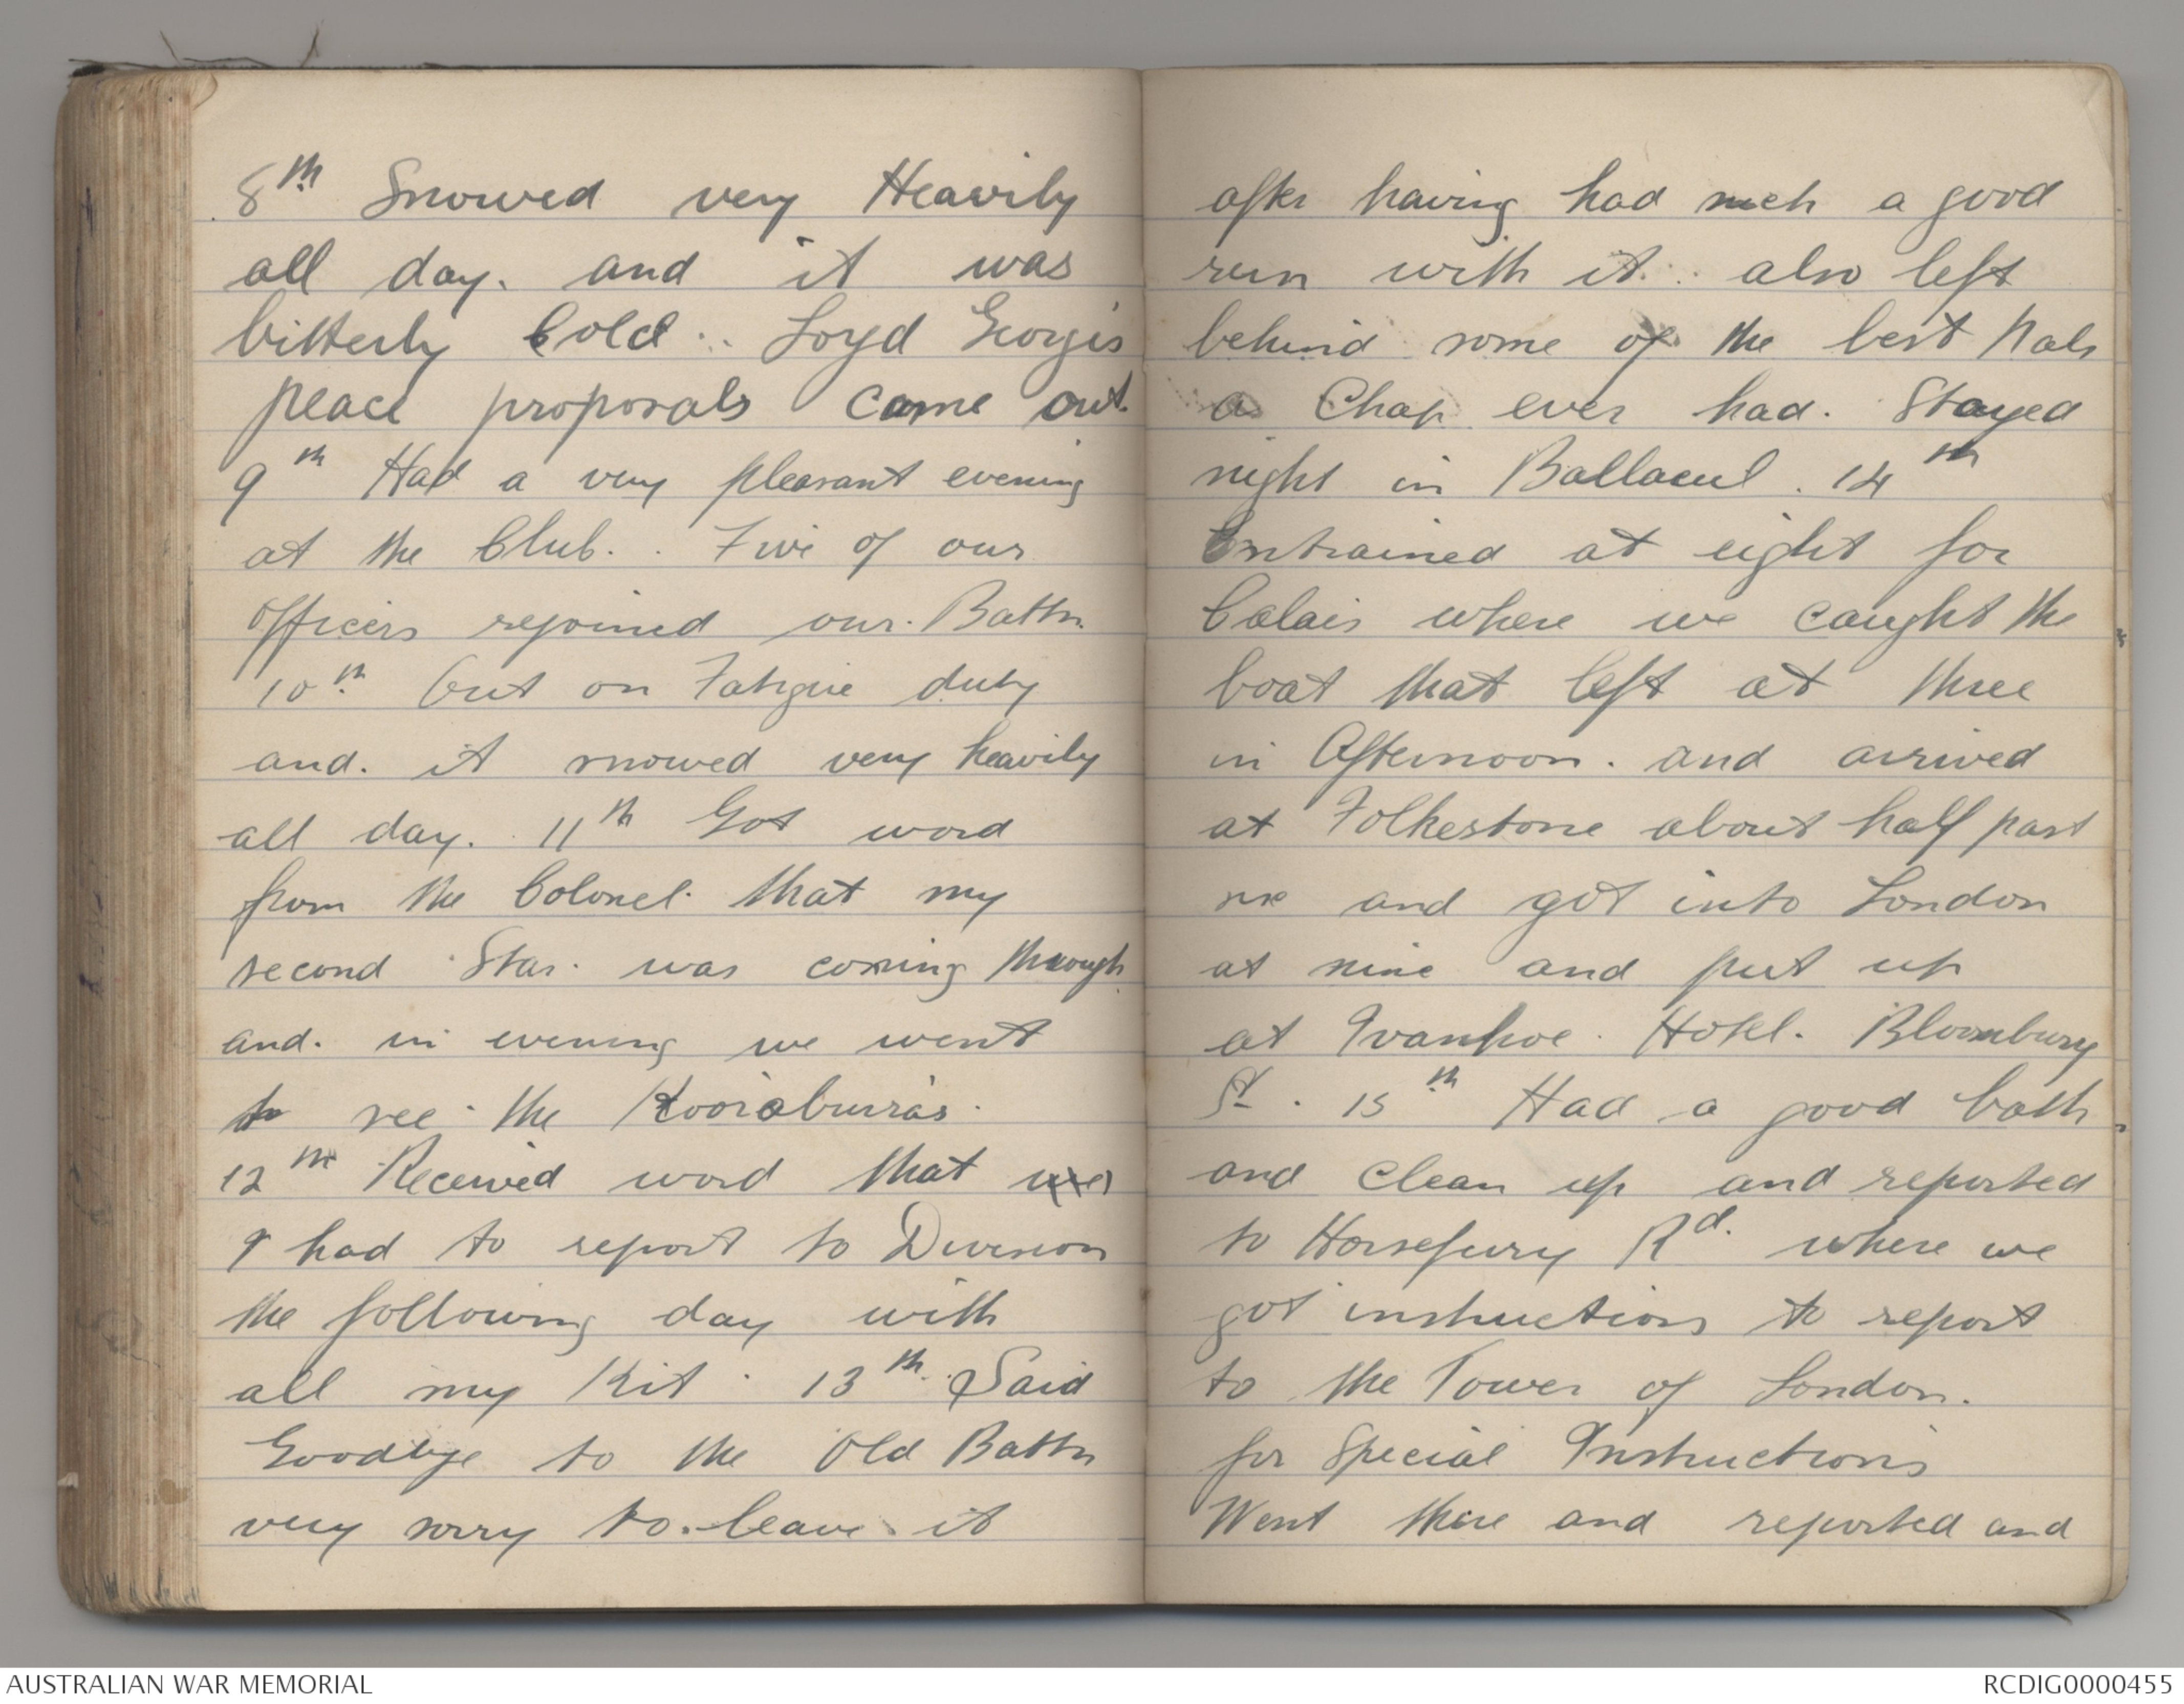 8th Snowed very Heavily
all day. and it was
bitterly Cold. Loyd Georges
peace proposals came out.
9th Had a very pleasant evening
at the Club. Five of our
Officers rejoined our Battn
10th Out on Fatigue duty
and. it snowed very heavily
all day. 11th Got word
from the Colonel that my
second Star. was coming through
and. in evening we went
to see the Kooraburras.
12th Received word that we
I had to report to Division
the following day with
all my Kit. 13th Said
Goodbye to the Old Battn
very sorry to leave it
after having had such a good
run with it. also left
behind some of the best Pals
a Chap ever had. Stayed
night in Ballaeul. 14th
Entrained at eight for
Calais where we caught the
boat that left at three
in Afternoon. and arrived
at Folkestone about half past
six and got into London
at nine and put up
at Ivanhoe Hotel. Bloombury
St. 15th Had a good bath
and clean up and reported
to Horsefury Rd. where we
got instructions to report
to the Tower of London.
for Special Instructions
Went there and reported and
AUSTRALIAN WAR MEMORIAL
RCDIG0000455